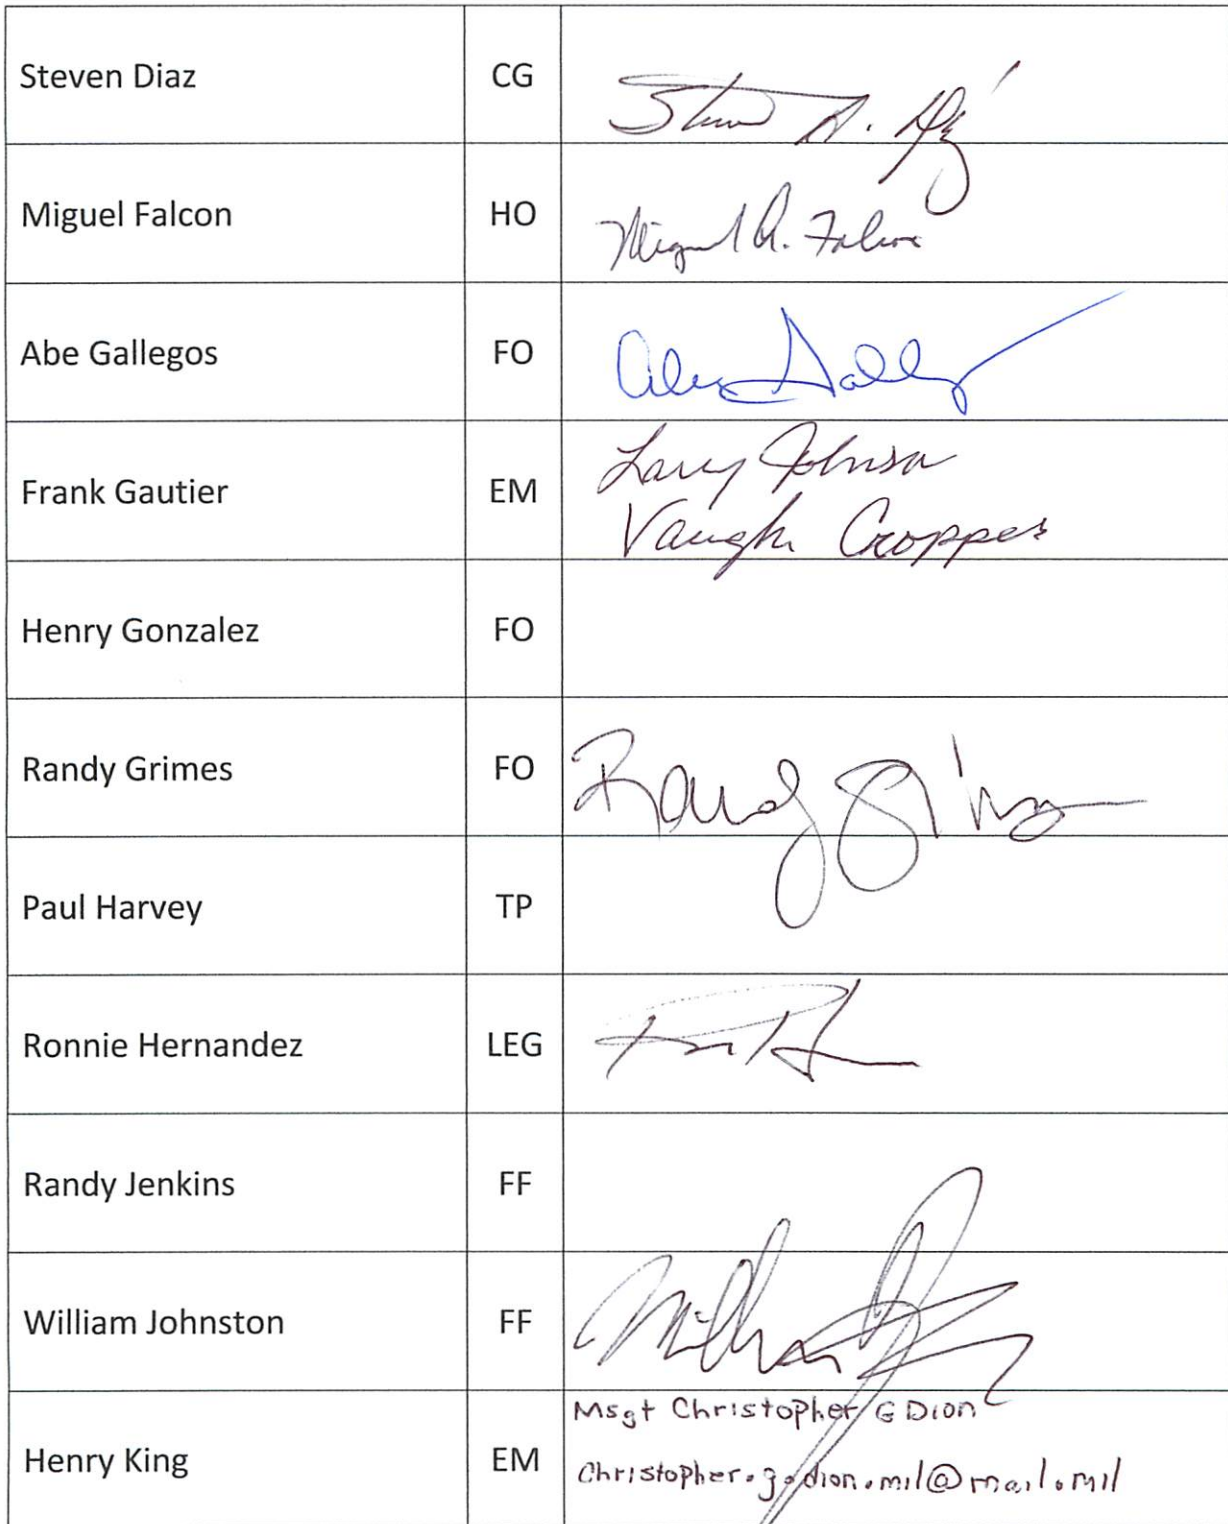 Steven Diaz CG Steven D. Diaz
Miguel Falcon HO Miguel A. Falcon
Abe Gallegos FO
Frank Gautier EM Larry Johnson
Vaughn Cropper
Henry Gonzalez FO
Randy Grimes FO Randy Grimes
Paul Harvey TP
Ronnie Hernandez LEG
Randy Jenkins FF
William Johnston FF
Henry King EM Msgt Christopher G Dion
Christopher.g.dion.mil@mail.mil